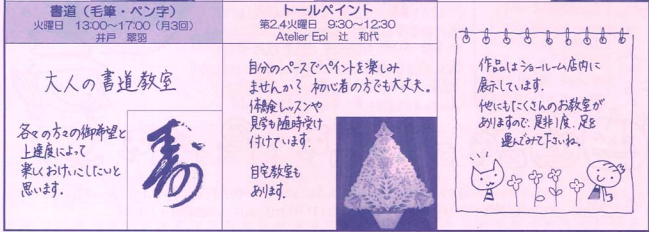 書道（毛筆・ペン字）
火曜日 13:00～17:00（月3回）
井戸 翠羽
大人の書道教室
各々の方々の御希望と
上達度によって
楽しくおけいこしたいと
思います。
寿
トールペイント
第2.4火曜日 9:30～12:30
Atelier Epi 辻 和代
自分のペースでペイントを楽しみ
ませんか? 初心者の方でも大丈夫。
体験レッスンや
見学も随時受け
付けています。
自宅教室も
あります.
作品はショールーム店内に
展示しています。
他にもたくさんのお教室が
ありますので、是非1度、足を
運んでみて下さいね。